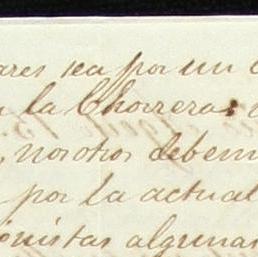 ares sea por un
la Chorrera:
, nosotros debem
por la actual
onistas algunas